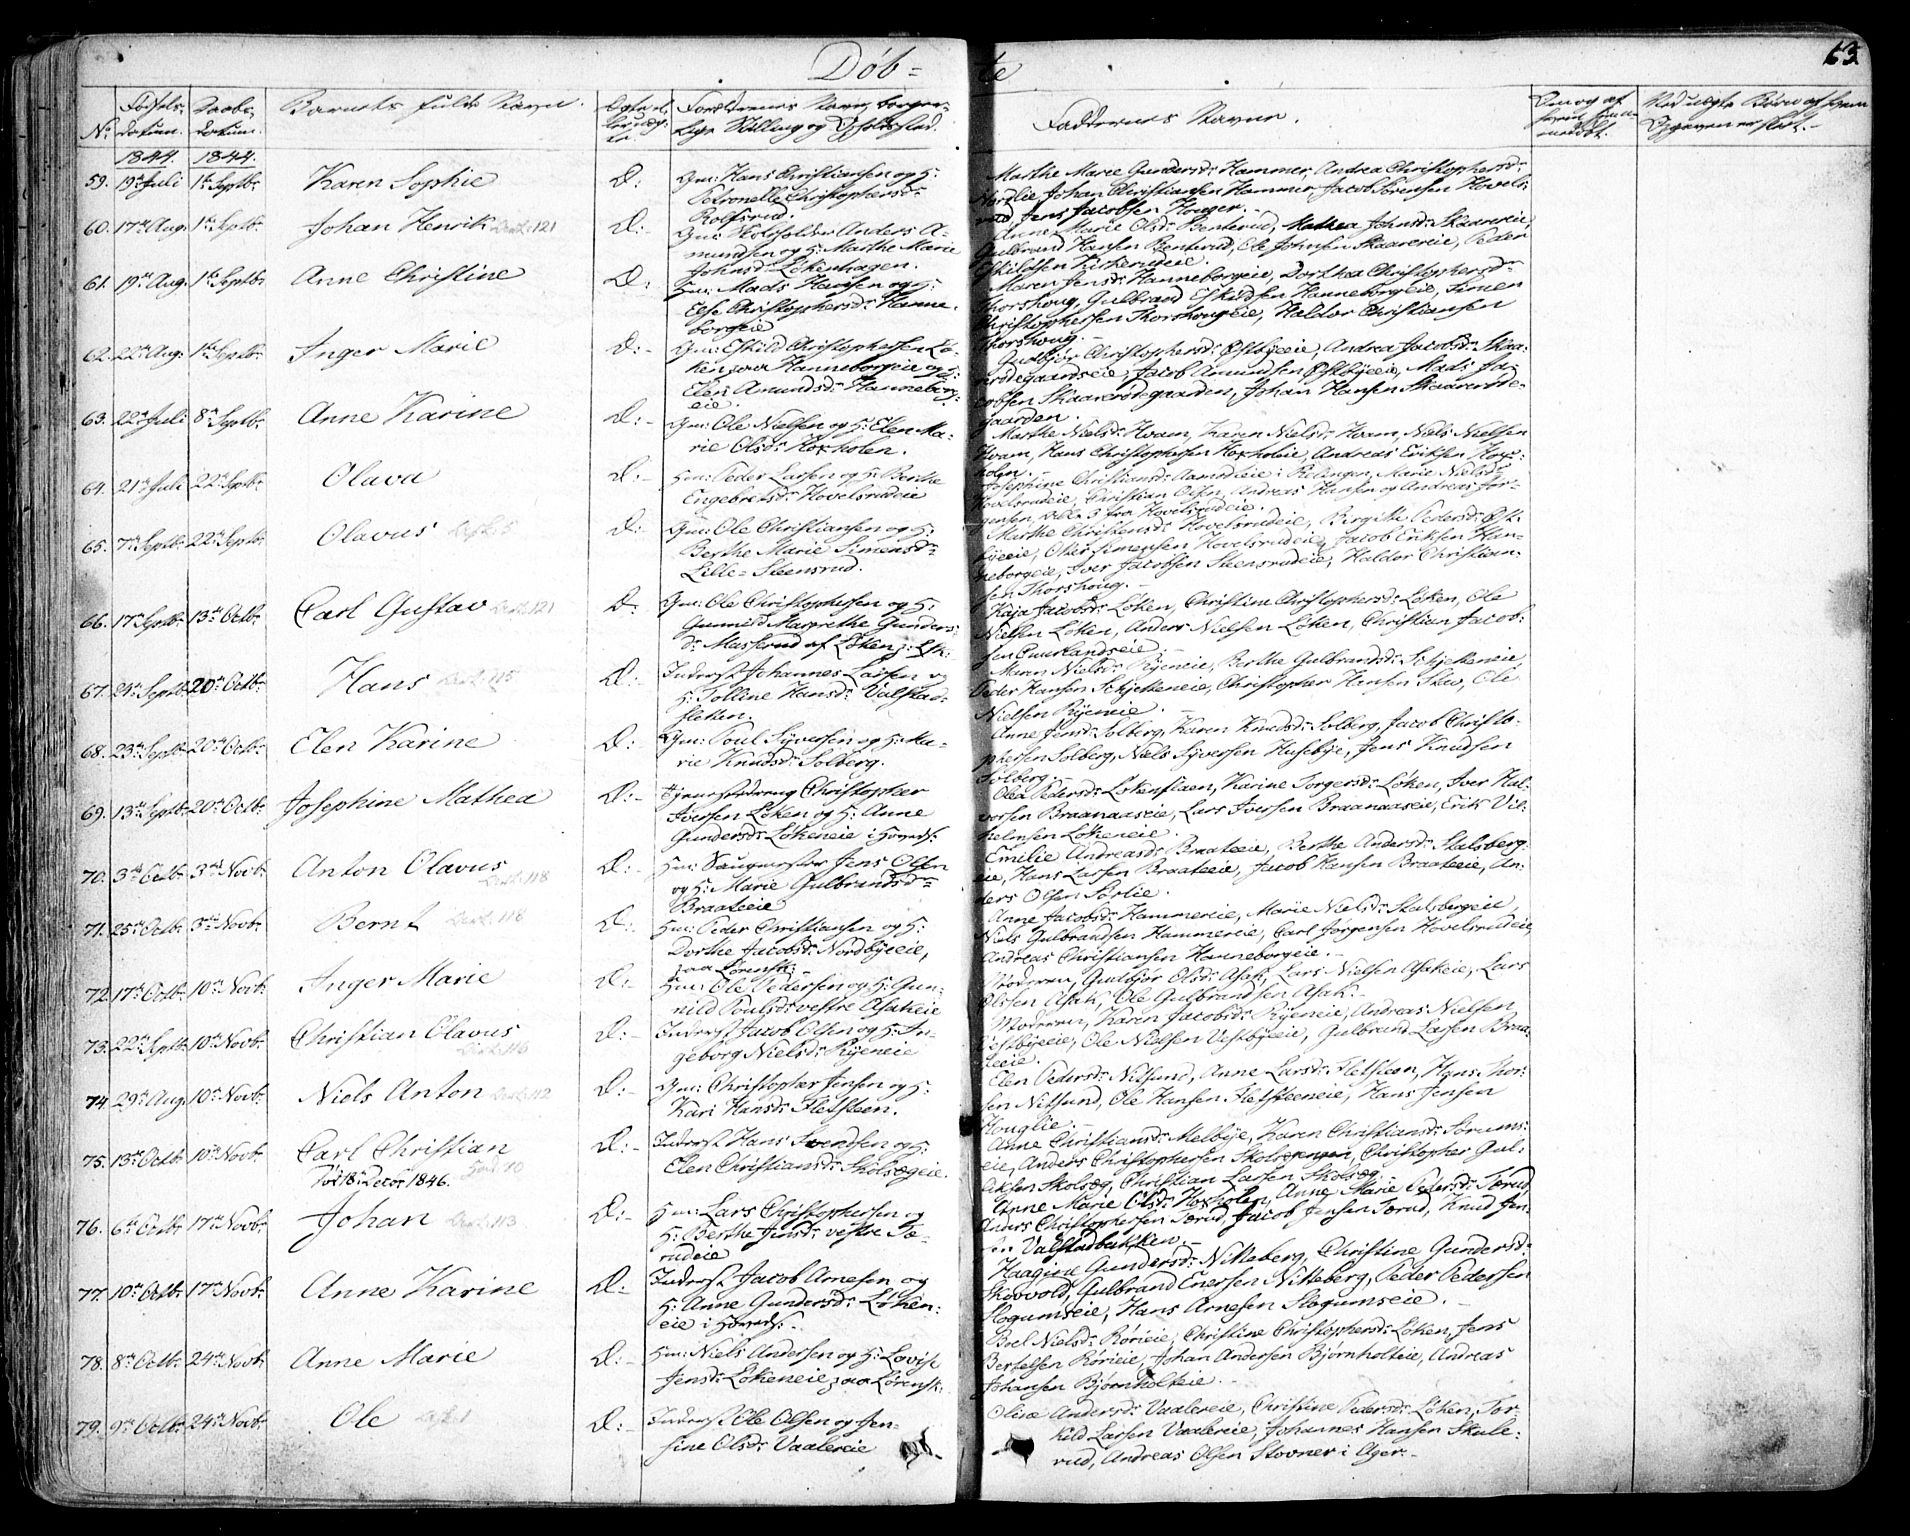 Døb=
te
63
No
Fødsels-
datum.
Daabs-
datum.
Barnets fulde Navn.
Forældrenes Navn, borger-
lige Stilling og Opholdssted.
Faddernes Navne.
1844. 1844.
59. 19de Juli 1ste Septbr Karen Sophie D:
Gm: Hans Christiansen og H:
Petronelle Christophersdr
Rolfsrud.
Marthe Marie Gundersdr Hammer, Andrea Christophersdr
Johan Christiansen Hammer, Jacob Sørensen Hovels-
rud, Jens Jacobsen Houger.
60. 17de Aug. 1ste Septbr Johan Henrik D:
Gm: Skoleholder Anders A-
mundsen og H: Marthe Marie
Johnsdr Løkenhagen.
Anne Marie Olsdr Benterud, Mathea Johnsdr Skaarereie,
Gulbrand Hansen Benterud, Ole Johnsen Skaarereie, Peder
Eskildsen Kirkerudeie.
61. 19de Aug. 1ste Septbr Anne Christine D:
Hm: Mads Hansen og H:
Else Christophersdr Hanne-
borgeie
Maren Jensdr Hanneborgeie, Dorthea Christophersdr
Thorshoug, Gulbrand Eskildsen Hanneborgeie, Simen
Christophersen Thorshougeie, Haldor Christiansen
Thorshoug.
62. 22de Aug. 1ste Septbr Inger Marie D:
Gm: Eskild Christophersen Lø-
ken paa Hanneborgeie og H:
Elen Amundsdr Hanneborg-
eie.
Gulbjør Christophersdr Østbyeie, Andrea Jacobsdr Skaa-
rerødegaardseie, Jacob Amundsen Østbyeie, Mads Ja-
cobsen Skaarerødegaarden, Johan Hansen Skaarerøde-
gaarden.
63. 22de Juli 8de Septbr Anne Karine D:
Gm: Ole Nielsen og H: Elen Ma-
rie Olsdr Hoxholen.
Marthe Nielsdr Hvam, Karen Nielsdr Hvam, Niels Nielsen
Hvam, Hans Christophersen Hoxholeie, Andreas Eriksen Hox-
holen.
64. 21de Juli 22de Septbr Olava D:
Hm: Peder Larsen og H: Berthe
Engebretsdr Hovelsrudeie
Josephine Christiansdr Aamodeie i Rælingen, Marie Nielsdr
Hovelsrudeie, Christian Olsen, Andreas Hansen og Andreas Jør-
gensen, alle 3 fra Hovelsrudeie.
65. 7de Septbr 22de Septbr Olavus D:
Gm: Ole Christiansen og H:
Berthe Marie Simensdr
Lille-Steensrud.
Marthe Christensdr Hovelsrudeie, Birgitte Pedersdr Øst-
byeeie, Ole Simensen Hovelsrudeie, Jacob Eriksen Han-
neborgeie, Iver Jacobsen Steensrudeie, Haldor Christian-
sen Thorshoug.
66. 17de Septbr 13de Octbr Carl Gustav D:
Gm: Ole Christophersen og H:
Gunnild Margrethe Gunders-
dr Masserud af Løken
Kaja Jacobsdr Løken, Christine Christophersdr Løken, Ole
Nielsen Løken, Anders Nielsen Løken, Christian Jacob-
sen Puurlandseie.
67. 24de Septbr 20de Octbr Hans D:
Inderst Johannes Larsen og
H: Tolline Hansdr Valstad-
sletten.
Maren Nielsdr Ryeneie, Berthe Gulbrandsdr Skjetteneie,
Peder Hansen Skjetteneie, Christopher Hansen Skeo, Ole
Nielsen Ryeneie.
68. 23de Septbr 20de Octbr Elen Karine D:
Gm: Poul Syversen og H: Ma-
rie Knudsdr Solberg.
Anne Jensdr Solberg, Karen Knudsdr Solberg, Jacob Christo-
phersen Solberg, Niels Syversen Husebye, Jens Knudsen
Solberg.
69. 13de Septbr 20de Octbr Josephine Mathea D:
Tjenestedreng Christopher
Iversen Løken og H: Anne
Gundersdr Løkeneie i Hoveds:
Olea Pedersdr Løkenstuen, Karine Torgersdr Løken, Iver Hal-
vorsen Braanaaseie, Lars Iversen Braanaaseie, Erik Vil-
helmsen Løkeneie.
70. 3de Octbr 3de Novbr Anton Olavus D:
Hm: Saugmester Jens Olsen
og H: Marie Gulbrandsdr
Braateeie
Emilie Andreasdr Braateeie, Berthe Andersdr Stalsberg-
eie, Hans Larsen Braateeie, Jacob Hansen Braateeie, An-
ders Olsen Sørlie.
71. 25de Octbr 3de Novbr Bernt D:
Hm: Peder Christiansen og H:
Dorthe Jacobsdr Nordbyeeie,
paa Lørensk:
Anne Jacobsdr Hammereie, Marie Nielsdr Stalsbergeie,
Niels Gulbrandsen Hammereie, Carl Jørgensen Hovelsrudeie,
Andreas Christiansen Hanneborgeie.
72. 17de Octbr 10de Novbr Inger Marie D:
Hm: Ole Pedersen og H: Gun-
nild Poulsdr vestre Asakeie
Moderen, Gulbjør Olsdr Asak, Lars Nielsen Asakeie, Lars
Olsen Asak, Ole Gulbrandsen Asak.
73. 22de Septbr 10de Novbr Christian Olavus D:
Inderst Jacob Olsen og H: In-
geborg Nielsdr Ryeneie
Moderen, Karen Jacobsdr Ryeneie, Andreas Nielsen
Vestbyeeie, Ole Nielsen Vestbyeeie, Gulbrand Larsen Braa-
teeie.
74. 29de Aug. 10de Novbr Niels Anton D:
Gm: Christopher Jensen og H:
Kari Hansdr Fletsteen.
Elen Pedersdr Nitsund, Anne Larsdr Fletsteen, Hans Thor-
sen Nitsund, Ole Hansen Fletsteeneie, Hans Jensen
Houglie.
75. 13de Octbr 10de Novbr Carl Christian D:
Død 18de Decbr 1846.
Inderst Hans Svendsen og H:
Elen Christiansdr Skolsægeie.
Anne Christiansdr Melbye, Karen Christiansdr Sørums-
eie, Anders Christophersen Skolsægengen, Christopher Gul-
liksen Skolsæg, Christian Larsen Skolsæg.
76. 6te Octbr 17de Novbr Johan D:
Hm: Lars Christophersen og
H: Berthe Jensdr vestre Tæ-
rudeie
Anne Marie Olsdr Hoxholen, Anne Marie Pedersdr Tærud,
Anders Christophersen Tærud, Jacob Jensen Tærud, Knud Jen-
sen Valstadbakken.
77. 10de Octbr 17de Novbr Anne Karine D:
Inderst Jacob Arnesen og
H: Anne Gundersdr Løken-
eie i Hoveds:
Haagine Gundersdr Nitteberg, Christine Gundersdr
Skovvold, Gulbrand Enersen Nitteberg, Peder Pedersen
Slogumseie, Hans Arnesen Slogumseie.
78. 8de Octbr 24de Novbr Anne Marie D:
Hm: Niels Andersen og H: Lovise
Jensdr Løkeneie paa Lørensk:
Boel Nielsdr Rørieie, Christine Christophersdr Løken, Jens
Bertelsen Rørieie, Johan Andersen Bjørnholteie, Andreas
Johansen Bjørnholteie.
79. 9de Octbr 24de Novbr Ole D:
Inderst Ole Olsen og Jen-
sine Olsdr Vaalereie
Olise Andersdr Vaalereie, Christine Pedersdr Løken, Tor-
kild Larsen Vaalereie, Johannes Hansen Skule-
rud, Andreas Olsen Stovner i Ager.